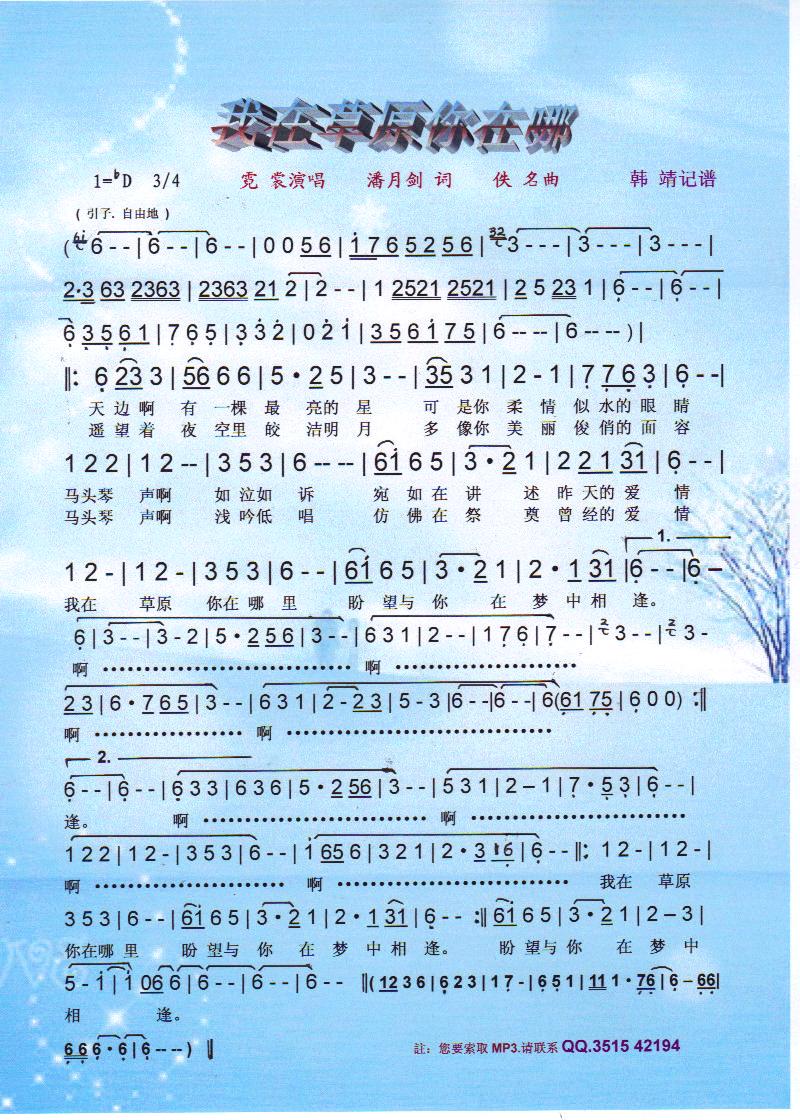 我在草原你在哪
1=♭D 3/4 霓 裳演唱 潘月剑 词 佚 名曲 韩 靖记谱
( 引子. 自由地 )
(6 - - | 6 - - | 6 - - | 0 0 5 6 | 1 7 6 5 2 5 6 | 3 - - - | 3 - - - | 3 - - |
2·3 63 2363 | 2363 21 2 | 2 - - | 1 2521 2521 | 2 5 23 1 | 6 - - | 6 - - |
6 3 5 6 1 | 7 6 5 | 3 3 2 | 0 2 1 | 3 5 6 1 7 5 | 6 -- -- | 6 -- -- ) |
‖: 6 23 3 | 56 6 6 | 5 · 2 5 | 3 - - | 35 3 1 | 2 - 1 | 7 7 6 3 | 6 - - |
天 边 啊 有 一棵 最 亮的 星 可 是你 柔 情 似 水的 眼 睛
遥 望 着 夜 空里 皎 洁明 月 多 像你 美 丽 俊 俏的 面 容
1 2 2 | 1 2 -- | 3 5 3 | 6 -- -- | 61 6 5 | 3 · 2 1 | 2 2 1 31 | 6 - - |
马头琴 声啊 如 泣如 诉 宛 如在 讲 述 昨 天的 爱 情
马头琴 声啊 浅 吟低 唱 仿 佛在 祭 奠 曾 经的 爱 情
1.
1 2 - | 1 2 - | 3 5 3 | 6 - - | 61 6 5 | 3 · 2 1 | 2 · 1 31 | 6 - - | 6 –
我在 草原 你在 哪 里 盼 望与 你 在 梦 中 相 逢。
6 | 3 - - | 3 - 2 | 5 · 2 5 6 | 3 - - | 6 3 1 | 2 - - | 1 7 6 | 7 - - | 3 - - | 3 -
啊 •••••••••••••••••••••••••• 啊 •••••••••••••••••••
2 3 | 6 · 7 6 5 | 3 - - | 6 3 1 | 2 - 2 3 | 5 - 3 | 6 - - | 6 - - | 6 (61 75 | 6 0 0 ) :‖
啊 ••••••••••••••• 啊 ••••••••••••••••••••••••••••
2.
6 - - | 6 - - | 6 3 3 | 6 3 6 | 5 · 2 56 | 3 - - | 5 3 1 | 2 – 1 | 7 · 5 3 | 6 - - |
逢。 啊 ••••••••••••••••••••••••• 啊 •••••••••••••••••••••••••
1 2 2 | 1 2 - | 3 5 3 | 6 - - | 1 65 6 | 3 2 1 | 2 · 3 16 | 6 - - ‖: 1 2 - | 1 2 - |
啊 •••••••••••••••••••• 啊 ••••••••••••••••••••••••••• 我在 草原
3 5 3 | 6 - - | 61 6 5 | 3 · 2 1 | 2 · 1 31 | 6 - - :‖ 61 6 5 | 3 · 2 1 | 2 – 3 |
你在哪 里 盼 望与 你 在 梦 中 相 逢。 盼 望与 你 在 梦 中
5 - 1 | 1 06 6 | 6 - - | 6 - - | 6 - - ‖( 12 3 6 | 6 2 3 | 1 7 - | 6 5 1 | 11 1 · 76 | 6 – 66 |
相 逢。
6 6 6 · 6 | 6 -- -- ) ‖
註: 您要索取 MP3.请联系 QQ.3515 42194